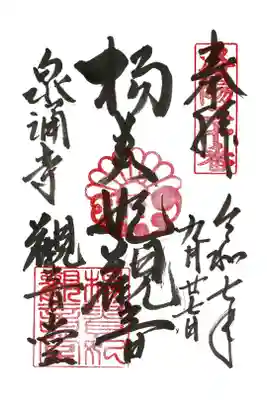 奉拝
令和七年
九月廿七日
楊貴妃観音
泉涌寺
観音堂